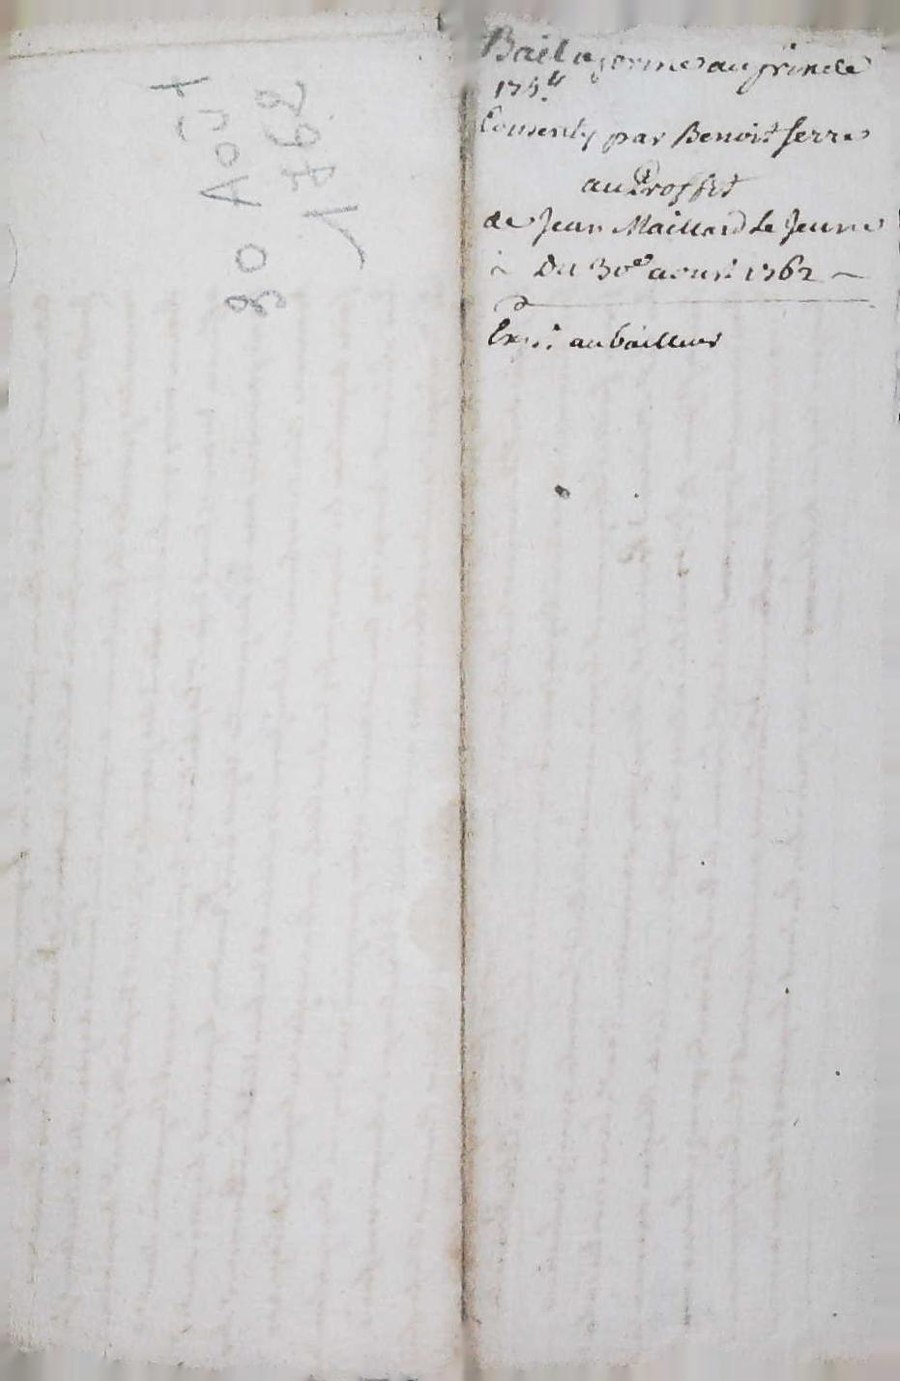 30 Aoüt
1762
Bail a ferme au prix de
175 ₶
Consenty par Benoist Serre
au Proffit
de Jean Maillard Le Jeune
Du 30e aoust 1762
Exp.: au bailleur